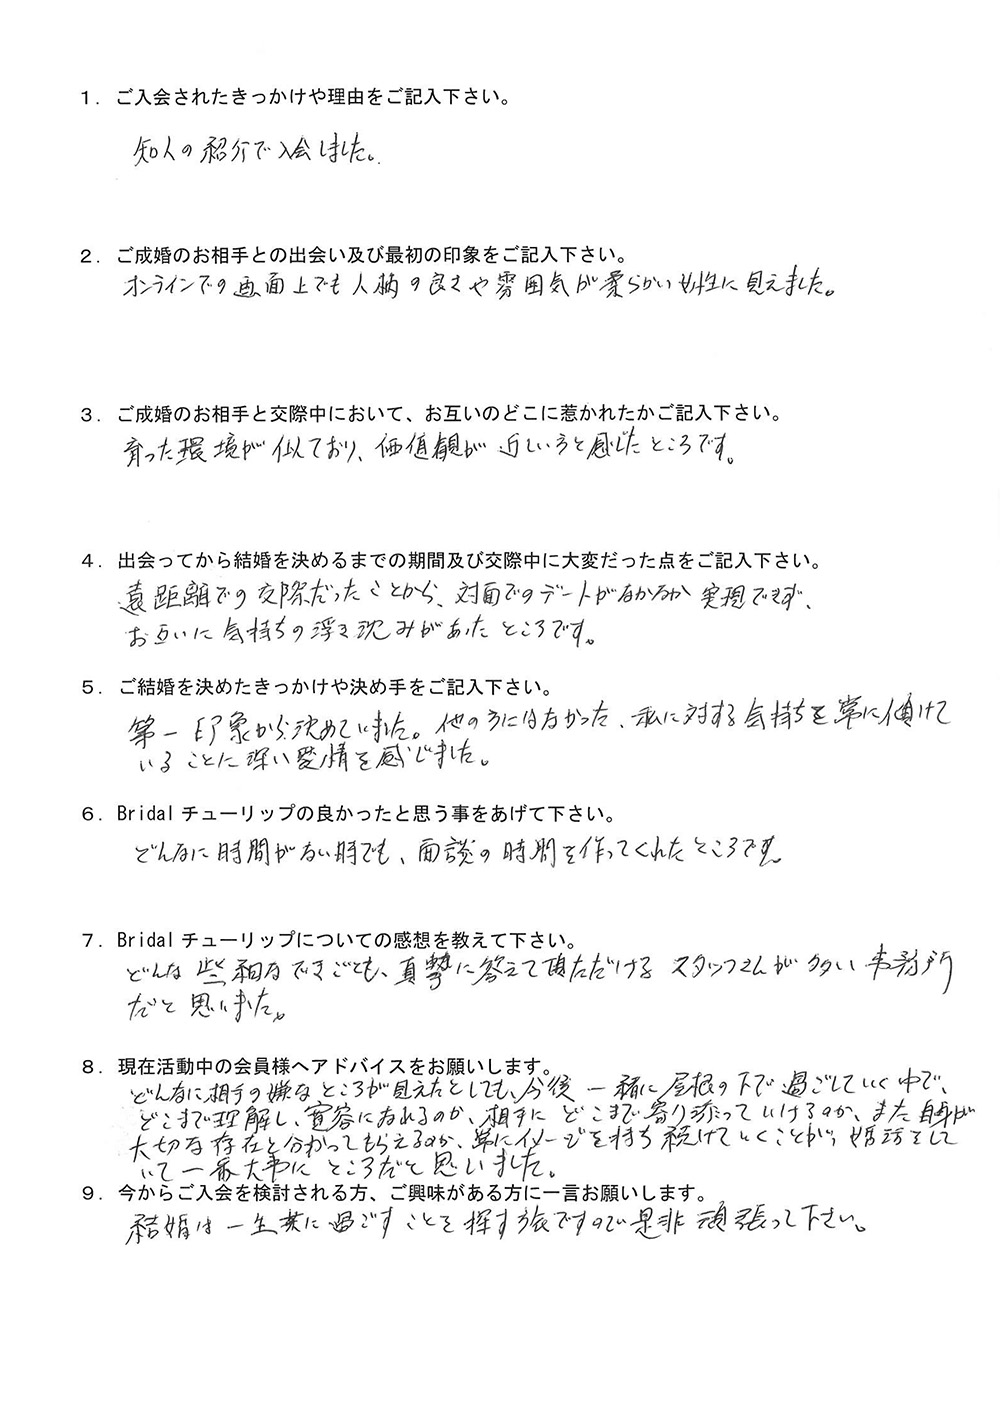 1. ご入会されたきっかけや理由をご記入下さい。
知人の紹介で入会しました。
2. ご成婚のお相手との出会い及び最初の印象をご記入下さい。
オンラインでの画面上でも人柄の良さや雰囲気が柔らかい女性に見えました。
3. ご成婚のお相手と交際中において、お互いのどこに惹かれたかご記入下さい。
育った環境が似ており、価値観が近しいうと感じたところです。
4. 出会ってから結婚を決めるまでの期間及び交際中に大変だった点をご記入下さい。
遠距離での交際だったことから、対面でのデートがなかなか実現できず、
お互いに気持ちの浮き沈みがあったところです。
5. ご結婚を決めたきっかけや決め手をご記入下さい。
第一印象から決めていました。他の方にはなかった、私に対する気持ちを常に傾けて
いることに深い愛情を感じました。
6. Bridal チューリップの良かったと思う事をあげて下さい。
どんなに時間がない時でも、面談の時間を作ってくれたところです。
7. Bridal チューリップについての感想を教えて下さい。
どんな些細なできごとも、真摯に答えて頂ただける スタッフさんが多い事務所
だと思いました。
8. 現在活動中の会員様へアドバイスをお願いします。
どんなに相手の嫌なところが見えたとしても、今後一緒に屋根の下で過ごしていく中で、
どこまで理解し、寛容になれるのか、相手にどこまで寄り添っていけるのか、また自身が
大切な存在と分かってもらえるのか、常にイメージを持ち続けていくことが、婚活をして
いて一番大事にところだと思いました。
9. 今からご入会を検討される方、ご興味がある方に一言お願いします。
結婚は一生共に過ごすことを探す旅ですので是非頑張って下さい。